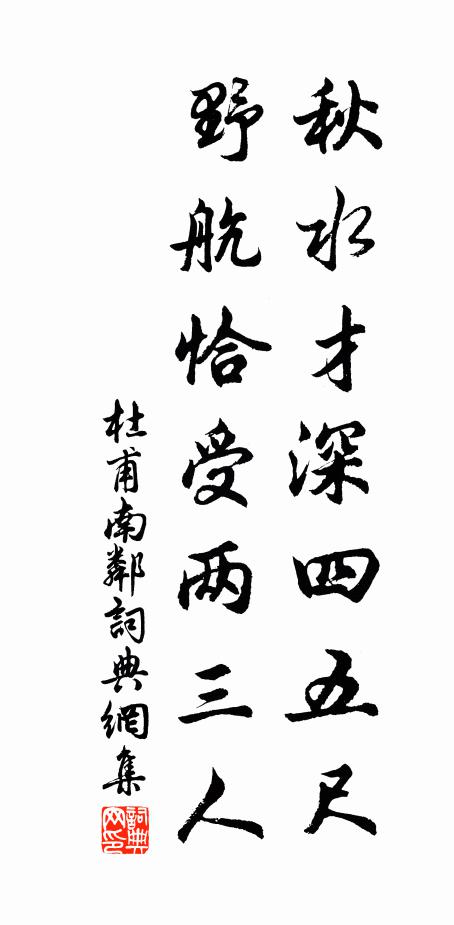 秋水才深四五尺
野航恰受两三人
杜甫南鄰詞典網集
詞典网印